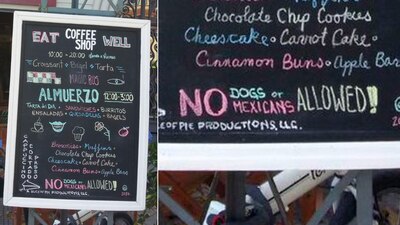 EAT COFFEE SHOP WELL
10:00 - 20:00
Croissant Bagel Tarta
MAGIC BUS
ALMUERZO 12:00-3:00
TARTA DEL DIA SANDWICHES BURRITOS
ENSALADAS QUESADILLAS BAGELS
Brownies Muffins
Chocolate Chip Cookies
Cheescake Carrot Cake
Cinnamon Buns Apple Bars
CAPPUCCINO
CORTADO
NO DOGS or MEXICANS ALLOWED!
Muffins
Chocolate Chip Cookies
Cheescake Carrot Cake
Cinnamon Buns Apple Bars
NO DOGS or MEXICANS ALLOWED!
PRODUCTIONS, LLC.